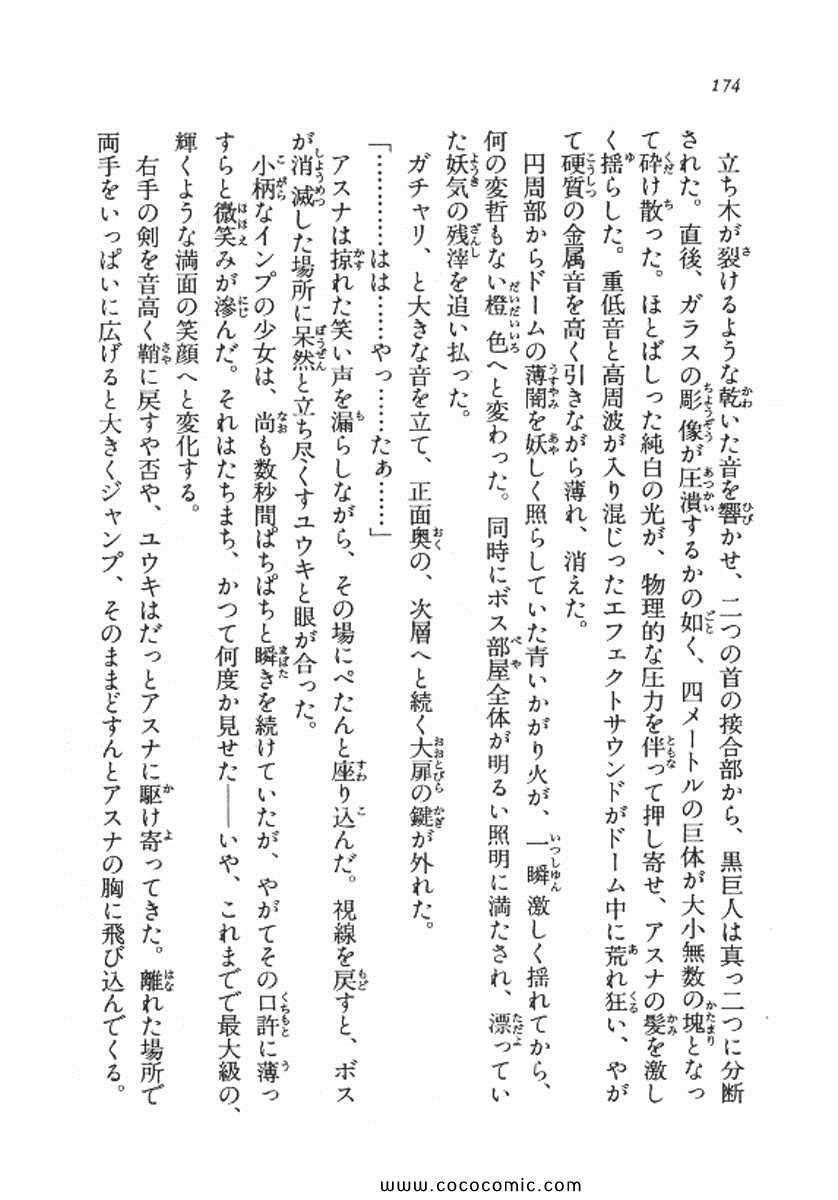 174
立ち木が裂けるような乾いた音を響かせ、二つの首の接合部から、黒巨人は真っ二つに分断
された。直後、ガラスの彫像が圧潰するかの如く、四メートルの巨体が大小無数の塊となっ
て砕け散った。ほとばしった純白の光が、物理的な圧力を伴って押し寄せ、アスナの髪を激し
く揺らした。重低音と高周波が入り混じったエフェクトサウンドがドーム中に荒れ狂い、やが
て硬質の金属音を高く引きながら薄れ、消えた。
円周部からドームの薄闇を妖しく照らしていた青いかがり火が、一瞬激しく揺れてから、
何の変哲もない橙色へと変わった。同時にボス部屋全体が明るい照明に満たされ、漂ってい
た妖気の残滓を追い払った。
ガチャリ、と大きな音を立て、正面奥の、次層へと続く大扉の鍵が外れた。
「…………はは……やっ……たぁ……」
アスナは掠れた笑い声を漏らしながら、その場にぺたんと座り込んだ。視線を戻すと、ボス
が消滅した場所に呆然と立ち尽くすユウキと眼が合った。
小柄なインプの少女は、尚も数秒間ぱちぱちと瞬きを続けていたが、やがてその口許に薄っ
すらと微笑みが滲んだ。それはたちまち、かつて何度か見せた――いや、これまでで最大級の、
輝くような満面の笑顔へと変化する。
右手の剣を音高く鞘に戻すや否や、ユウキはだっとアスナに駆け寄ってきた。離れた場所で
両手をいっぱいに広げると大きくジャンプ、そのままどすんとアスナの胸に飛び込んでくる。
www.cococomic.com